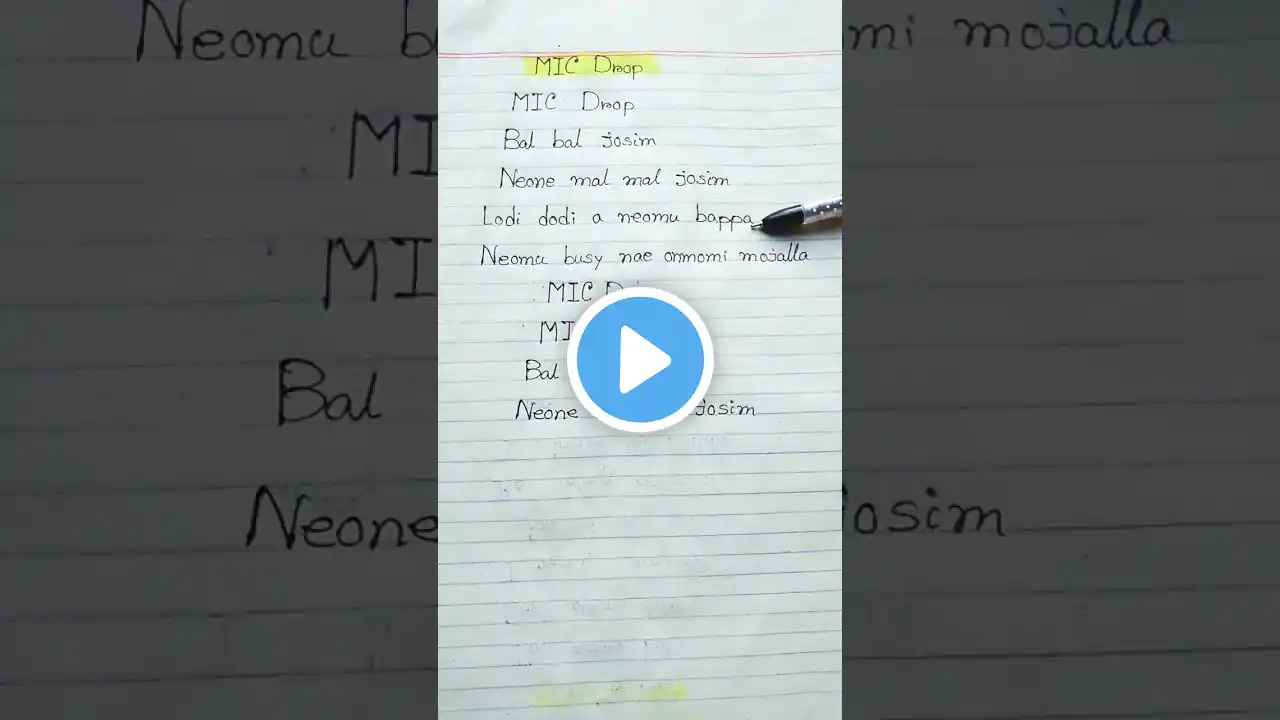 MIC Drop
MIC Drop
Bal bal josim
Neone mal mal josim
Lodi dodi a neomu bappa
Neomu busy nae onmomi mojalla
MIC
MI
Bal
Neone josim